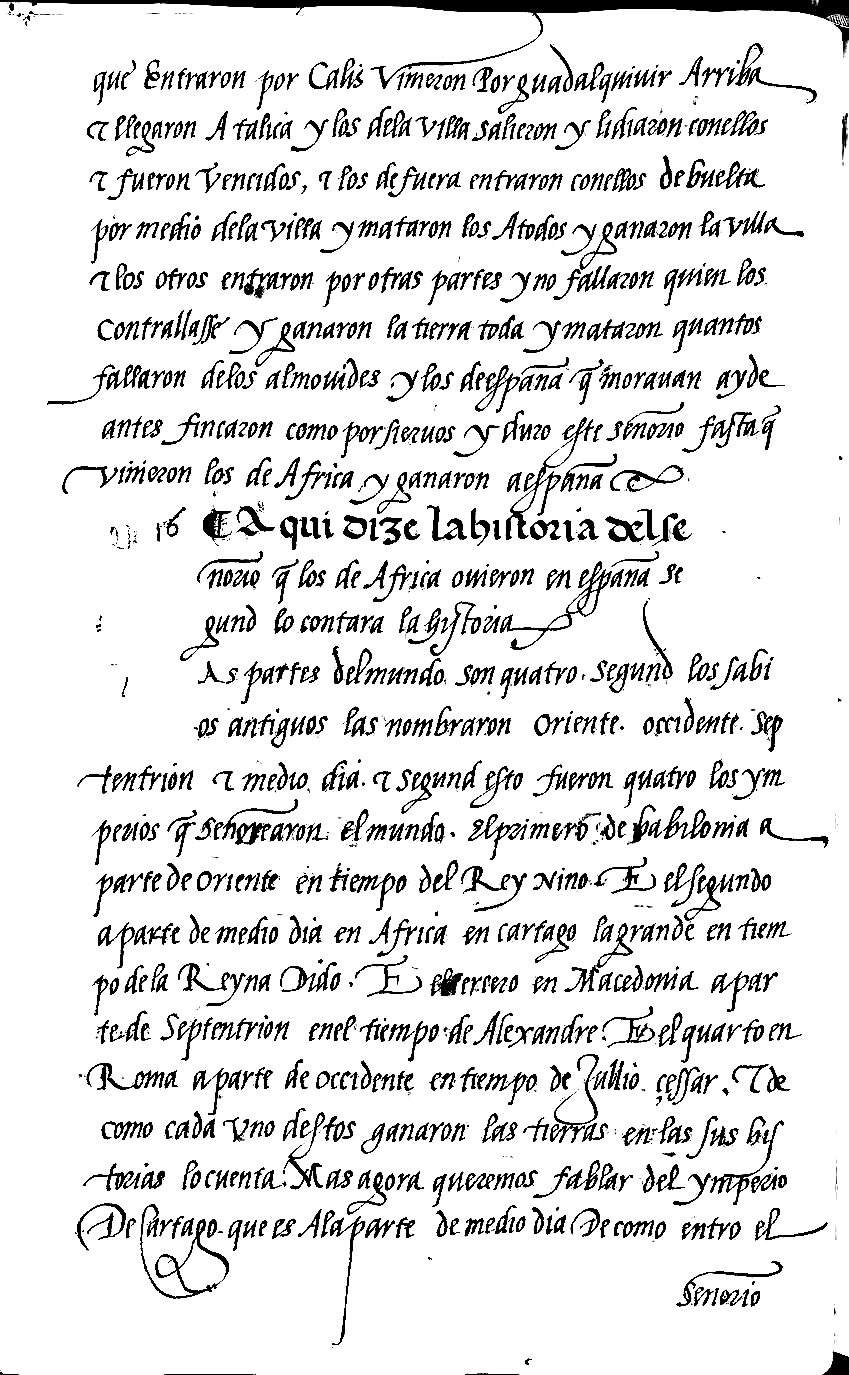 que Entraron por Calis Vinieron Por guadalquivir Arriba
τ llegaron A talica y los dela villa salieron y lidiaron conellos
τ fueron Vencidos, τ los de fuera entraron conellos de buelta
por medio dela villa y mataron los Atodos y ganaron la villa
τ los otros entraron por otras partes y no fallaron quien los
contrallasse y ganaron la tierra toda y mataron quantos
fallaron delos almouides y los de españa q̃ morauan ayde
antes fincaron como por sieruos y duro este señorio fasta q̃
vinieron los de Africa y ganaron a españa
16 ¶ A qui dize la historia del se
ñorio q̃ los de Africa ouieron en españa se
gund lo contara la historia
As partes del mundo son quatro. segund los sabi
os antiguos las nombraron oriente. occidente. sep
tentrion τ medio dia. τ segund esto fueron quatro los ym
perios q̃ señorearon el mundo. El primero de babilonia a
parte de oriente en tiempo del Rey Nino. E el segundo
a parte de medio dia en Africa en cartago la grande en tiem
po de la Reyna Dido. E el tercero en Macedonia a par
te de Septentrion en el tiempo de Alexandre. E el quarto en
Roma a parte de occidente en tiempo de Jullio çessar. τ de
como cada vno destos ganaron las tierras en las sus his
torias lo cuenta. Mas agora queremos fablar del ymperio
De Cartago que es Ala parte de medio dia De como entro el
señorio